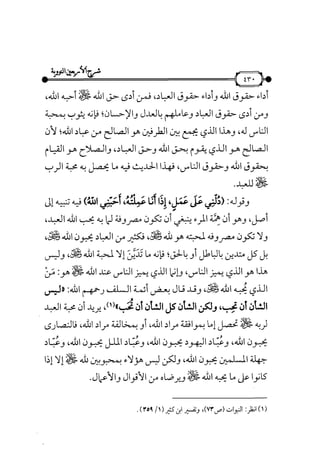 شرح الأربعين النووية
٤٣٠
أداء حقوق الله وأداء حقوق العباد، فمن أدى حق الله ﷻ أحبه الله،
ومن أدى حقوق العباد وعاملهم بالعدل والإحسان؛ فإنه يثوب بمحبة
الناس له، وهذا الذي يجمع بين الطرفين هو الصالح من عباد الله؛ لأن
الصالح هو الذي يقوم بحق الله وحق العباد، والصلاح هو القيام
بحقوق الله وحقوق الناس، فهذا الحديث فيه ما يحصل به محبة الرب
ﷻ للعبد.
وقوله: (دُلَّنِي عَلَى عَمَلٍ، إِذَا أَنَا عَمِلْتُهُ، أَحَبَّنِي اللهُ) فيه تنبيه إلى
أصل، وهو أن همَّة المرء ينبغي أن تكون مصروفة لما به يحب الله العبد،
ولا تكون مصروفة لمحبته هو لله ﷻ، فكثير من العباد يحبون الله ﷻ،
بل كل متدين بالباطل أو بالحق؛ فإنه ما تَدَيَّنَ إلا لمحبة الله ﷻ، وليس
هذا هو الذي يميز الناس، وإنما الذي يميز الناس عند الله ﷻ هو: مَنْ
الذي يحبه الله ﷻ، وقد قال بعض أئمة السلف رحمهم الله: «ليس
الشأن أن تحِب، ولكن الشأن كل الشأن أن تُحَب»(١)، يريد أن محبة العبد
لربه ﷻ تحصل إما بموافقة مراد الله، أو بمخالفة مراد الله، فالنصارى
يحبون الله، وعُبَّاد اليهود يحبون الله، وعُبَّاد الملل يحبون الله، وعُبَّاد
جهلة المسلمين يحبون الله، ولكن ليس هؤلاء بمحبوبين لله ﷻ إلا إذا
كانوا على ما يحبه الله ﷻ ويرضاه من الأقوال والأعمال.
(١) انظر: النبوات (ص٧٣)، وتفسير ابن كثير (١/ ٣٥٩).